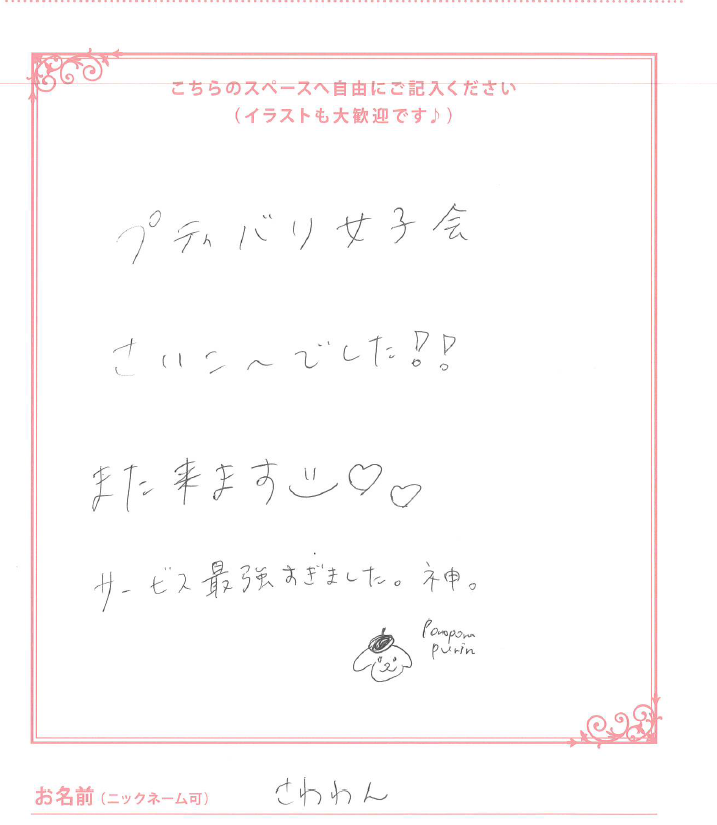 こちらのスペースへ自由にご記入ください
(イラストも大歓迎です♪)
プティバリ女子会
さいこ〜でした!!
また来ます♡♡
サービス最強すぎました。神。
Pompom
purin
お名前(ニックネーム可) さわわん